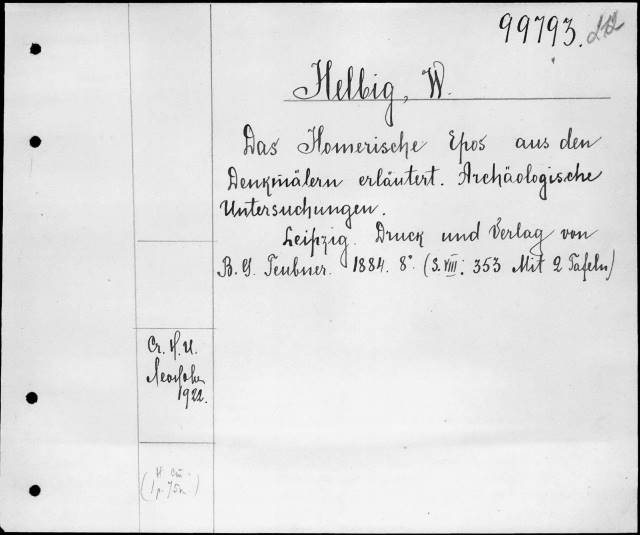 99793.
Helbig, W.
Das Homerische Epos aus den
Denkmälern erläutert. Archäologische
Untersuchungen.
Leipzig. Druck und Verlag von
B. G. Teubner. 1884. 8°. (S. VIII. 353 Mit 2 Tafeln)
1922.